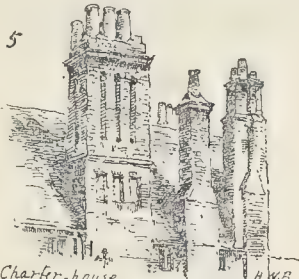 5
Charter-house H.W.B.